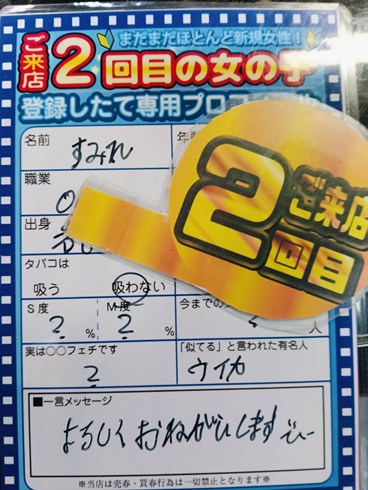 まだまだほとんど新規女性！
ご来店2回目の女の子
登録したて専用プロフ
名前
すみれ
年
職業
出身
タバコは
吸う
吸わない
S度
? %
M度
? %
今までの
人
実は○○フェチです
?
「似てる」と言われた有名人
ウイカ
ご来店
2回目
■一言メッセージ
よろしくおねがいします
※当店は売春・買春行為は一切禁止となります※